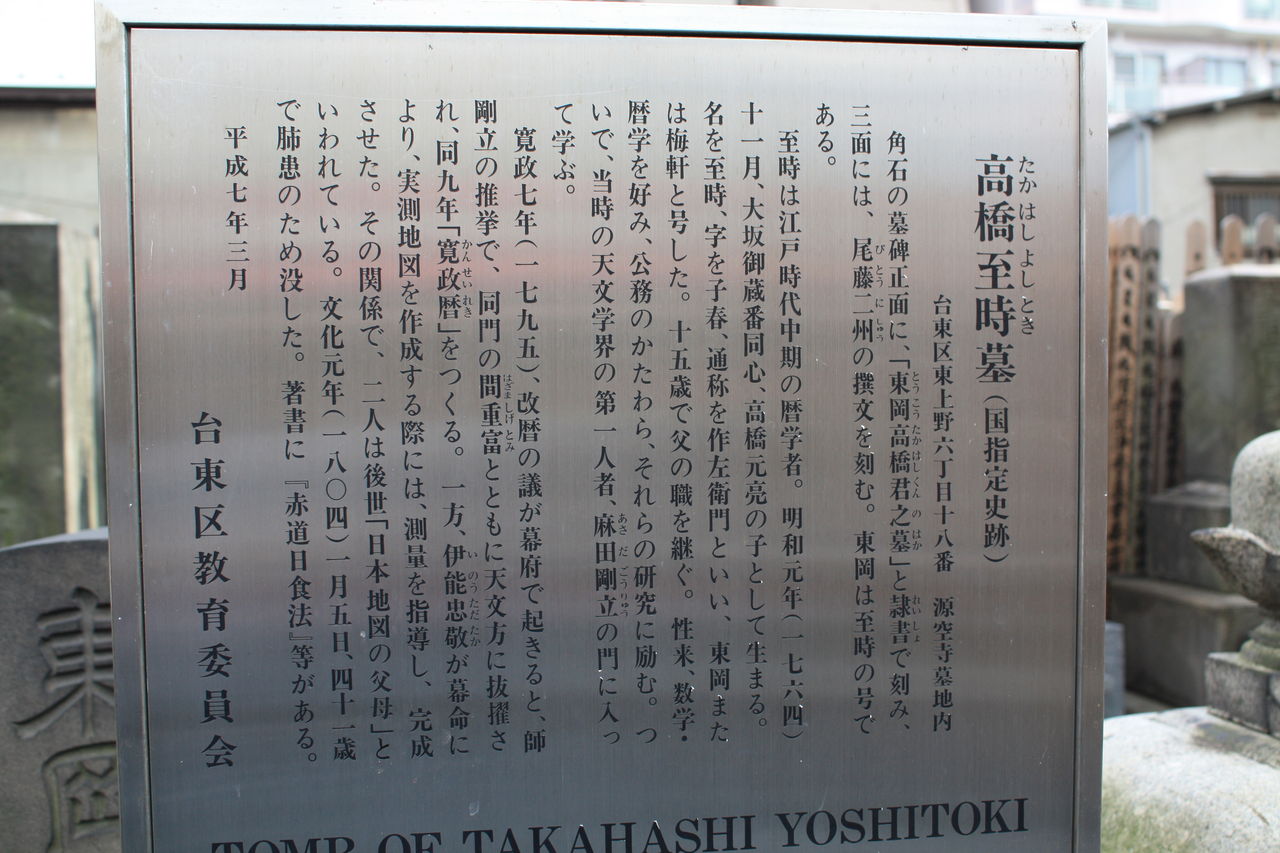 高橋至時墓（国指定史跡）
たかはしよしとき
台東区東上野六丁目十八番　源空寺墓地内
角石の墓碑正面に、「東岡高橋君之墓」と隷書で刻み、
とうこうたかはしくんのはか
れいしょ
三面には、尾藤二州の撰文を刻む。東岡は至時の号で
びとうにしゅう
ある。
至時は江戸時代中期の暦学者。明和元年（一七六四）
十一月、大坂御蔵番同心、高橋元亮の子として生まる。
名を至時、字を子春、通称を作左衛門といい、東岡また
は梅軒と号した。十五歳で父の職を継ぐ。性来、数学・
暦学を好み、公務のかたわら、それらの研究に励む。つ
いで、当時の天文学界の第一人者、麻田剛立の門に入っ
あさだごうりゅう
て学ぶ。
寛政七年（一七九五）、改暦の議が幕府で起きると、師
剛立の推挙で、同門の間重富とともに天文方に抜擢さ
はざましげとみ
れ、同九年「寛政暦」をつくる。一方、伊能忠敬が幕命に
かんせいれき
いのうただたか
より、実測地図を作成する際には、測量を指導し、完成
させた。その関係で、二人は後世「日本地図の父母」と
いわれている。文化元年（一八〇四）一月五日、四十一歳
で肺患のため没した。著書に『赤道日食法』等がある。
平成七年三月
台東区教育委員会
TOMB OF TAKAHASHI YOSHITOKI
東岡